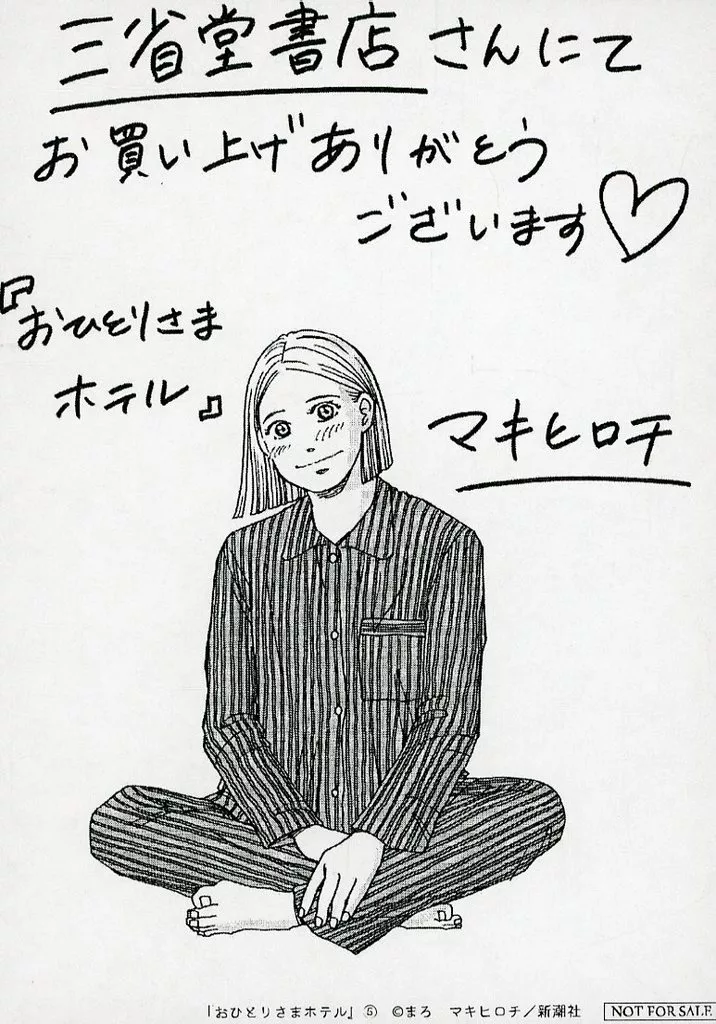 三省堂書店さんにて
お買い上げありがとう
ございます♡
『おひとりさま
ホテル』
マキヒロチ
「おひとりさまホテル」⑤ ©まろ マキヒロチ/新潮社
NOT FOR SALE